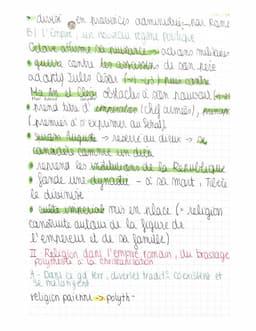 • divisé en provinces administrées par Rome
B) L'Empire, un nouveau régime politique
Octave affirme sa puissance → actions militaires
• guerre contre les assassins de son père
adoptif Jules César
obstacles à son pouvoir
• prend titre d'imperator (chef armées),
(premier à s'exprimer au Sénat)
• surnom Auguste → réservé au dieux → se
considère comme un dieu
• reprend les institutions de la République
• fonde une dynastie - à sa mort, Tibère
le divinise
• culte impérial mis en place (= religion
construite autour de la figure de
l'empereur et de sa famille)
II Religion dans l'empire romain, du brassage
polythéiste à la christianisation
A - Dans ce gd terr, diverses tradit° coexistent et
se mélangent
religion païenne → polyth-